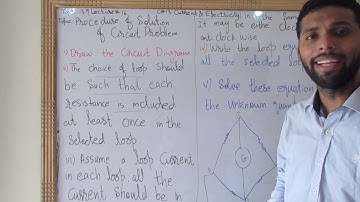 Lecture #16
The Procedure of Solution
of Circuit Problem
i) Draw the Circuit Diagrame
ii) The choice of loop should
be such that each
resistance is included
at least once in the
selected loop
iii) Assume a loop current
in each loop, all the
current should be in
Current & Electricity in the
It may be either the
clock wise
iv) Write the loop
all the selected
v) Solve these equation
the unknown
G